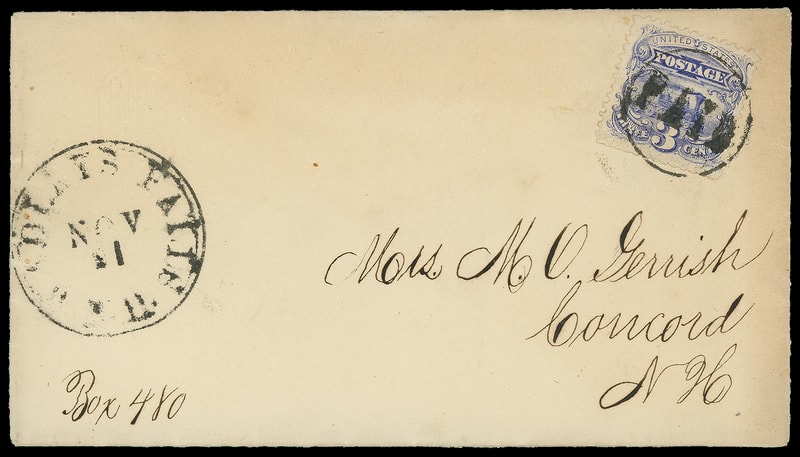 UNITED STATES
POSTAGE
PAID
3 CENTS
FALLS
NOV
11
Mrs. M. O. Gerrish
Concord
N H
Box 480